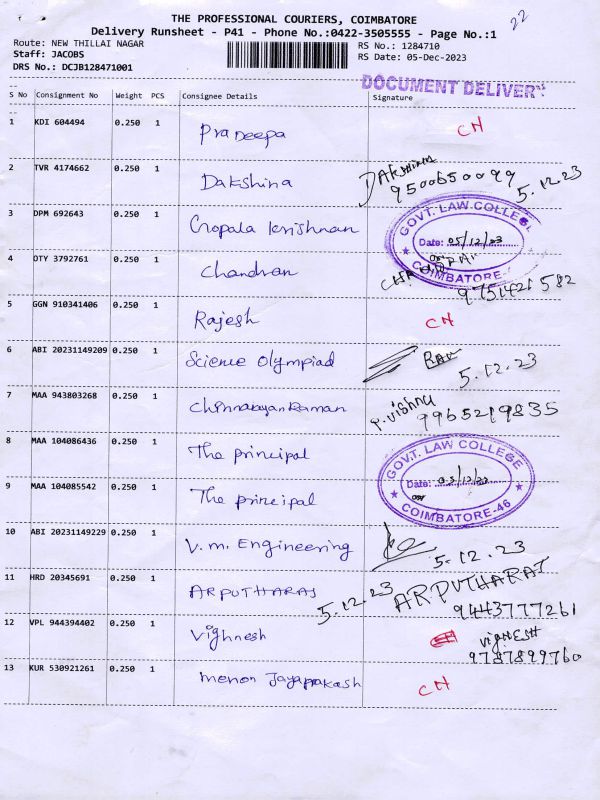 22
THE PROFESSIONAL COURIERS, COIMBATORE
Delivery Runsheet - P41 - Phone No.:0422-3505555 - Page No.:1
Route: NEW THILLAI NAGAR
RS No.: 1284710
Staff: JACOBS
RS Date: 05-Dec-2023
DRS No.: DCJB128471001
DOCUMENT DELIVERY
S No Consignment No Weight PCS Consignee Details Signature
1 KDI 604494 0.250 1 Pradeepa CH
2 TVR 4174662 0.250 1 Dakshina 9500650099 5.12.23
3 DPM 692643 0.250 1 Gopala krishnan
GOVT. LAW COLLEGE
Date: 05/12/23
COIMBATORE
4 OTY 3792761 0.250 1 Chandran 9751421582
5 GGN 910341406 0.250 1 Rajesh CH
6 ABI 20231149209 0.250 1 Science Olympiad 5.12.23
7 MAA 943803268 0.250 1 P. Vishnu 9965219835
8 MAA 104086436 0.250 1 The principal
GOVT. LAW COLLEGE
Date: 05/12/23
COIMBATORE-46
9 MAA 104085542 0.250 1 The principal
10 ABI 20231149229 0.250 1 V.M. Engineering 5.12.23
11 HRD 20345691 0.250 1 ARPUTHARAJ 5.12.23 ARPUTHARAJ
9443777261
12 VPL 944394402 0.250 1 Vighnesh VIGHNESH
9787899760
13 KUR 530921261 0.250 1 Menon Jayaprakash CH